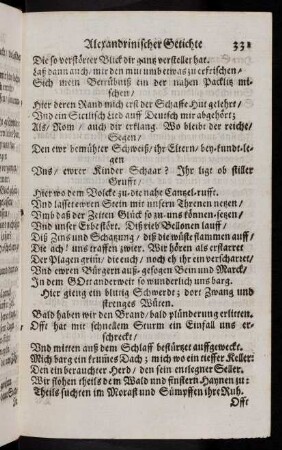 Alexandrinischer Getichte 331
Die so verstörter Blick dir gantz verstellet hat.
Laß dann auch / mir den mut umb etwas zu erfrischen /
Sich mein Betrübniß ein der nahen Packlitz mischen /
Hier deren Rand mich erst der Schaffe Hut gelehrt /
Und ein Sicelisch Lied auff Deutsch mir abgehört;
Als / Rom / auch dir erklang. Wo bleibt der reiche / Segen /
Den ewr bemühter Schweiß / ihr Eltern / bey-kundt-legen
Uns / ewrer Kinder Schaar? Ihr ligt ob stiller Grufft /
Hier wo dem Volcke zu-die nahe Cantzel-rufft.
Und lasset ewren Stein mit unsern Threnen netzen /
Umb daß der Zeiten Glück so zu-uns können-setzen /
Und unser Erbe stört. Diß rieb Bellonen lauff /
Diß Zins und Schatzung / diß die wüste flammen auff /
Die ach! uns traffen zwier. Wir hören als erstarret
Der Plagen grim / die euch / noch eh ihr ein verscharret /
Und ewren Bürgern auß-gesogen Bein und Marck /
In dem GOtt anderweit so wunderlich uns barg.
Hier gieng ein blutig Schwerdt; dort Zwang und strenges Wüten.
Bald haben wir den Brand / bald plünderung erlitten.
Offt hat mit schnellem Sturm ein Einfall uns erschreckt /
Und mitten auß dem Schlaff bestürtzt auffgeweckt.
Mich barg ein krumes Dach; mich wo ein tieffer Keller:
Den ein berauchter Herd / den sein entlegner Seller.
Wir flohen theils dem Wald und finstern Haynen zu:
Theils suchten im Morast und Sümpffen ihre Ruh.
Offt